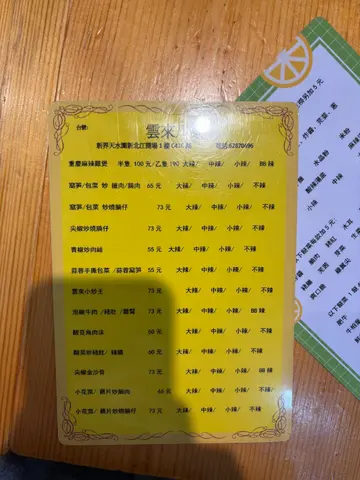 台號:
雲來
新界天水圍新北江商場1樓C43C舖 電話62870696
重慶麻辣雞煲 半隻 100 元/乙隻 190 大辣/ 中辣/ 小辣/ BB辣
窩筍/包菜 炒 臘肉/腸肉 65 元 大辣/ 中辣/ 小辣/ 不辣
窩筍/包菜 炒燒腩仔 73 元 大辣/ 中辣/ 小辣/ 不辣
尖椒炒燒腩仔 73 元 大辣/ 中辣/ 小辣/ 不辣
青椒炒肉絲 55 元 大辣/ 中辣/ 小辣/ 不辣
蒜蓉手撕包菜 /蒜蓉窩筍 55 元 大辣/ 中辣/ 小辣/ 不辣
雲來小炒王 73 元 大辣/ 中辣/ 小辣/ 不辣
泡椒牛肉 /豬肚 /雞腎 73 元 大辣/ 中辣/ 小辣/ BB辣
酸豆角肉沫 50 元 大辣/ 中辣/ 小辣/ 不辣
酸菜炒豬肚/ 豬腸 60 元 大辣/ 中辣/ 小辣/ 不辣
尖椒金沙骨 73 元 大辣/ 中辣/ 小辣/ BB辣/
小花菜/ 藕片炒腩肉 66 元 大辣/ 中辣/ 小辣/ 不辣
小花菜/ 藕片炒燒腩仔 73 元 大辣/ 中辣/ 小辣/ 不辣
另加 5 元
炸醬
米線
粉
水晶粉
酸辣湯底
大辣
中辣
小辣
不辣
以下餸菜每款加 5 元
豬紅
水耳
腩肉
豬腸
芡實
爽口腩
牛肚